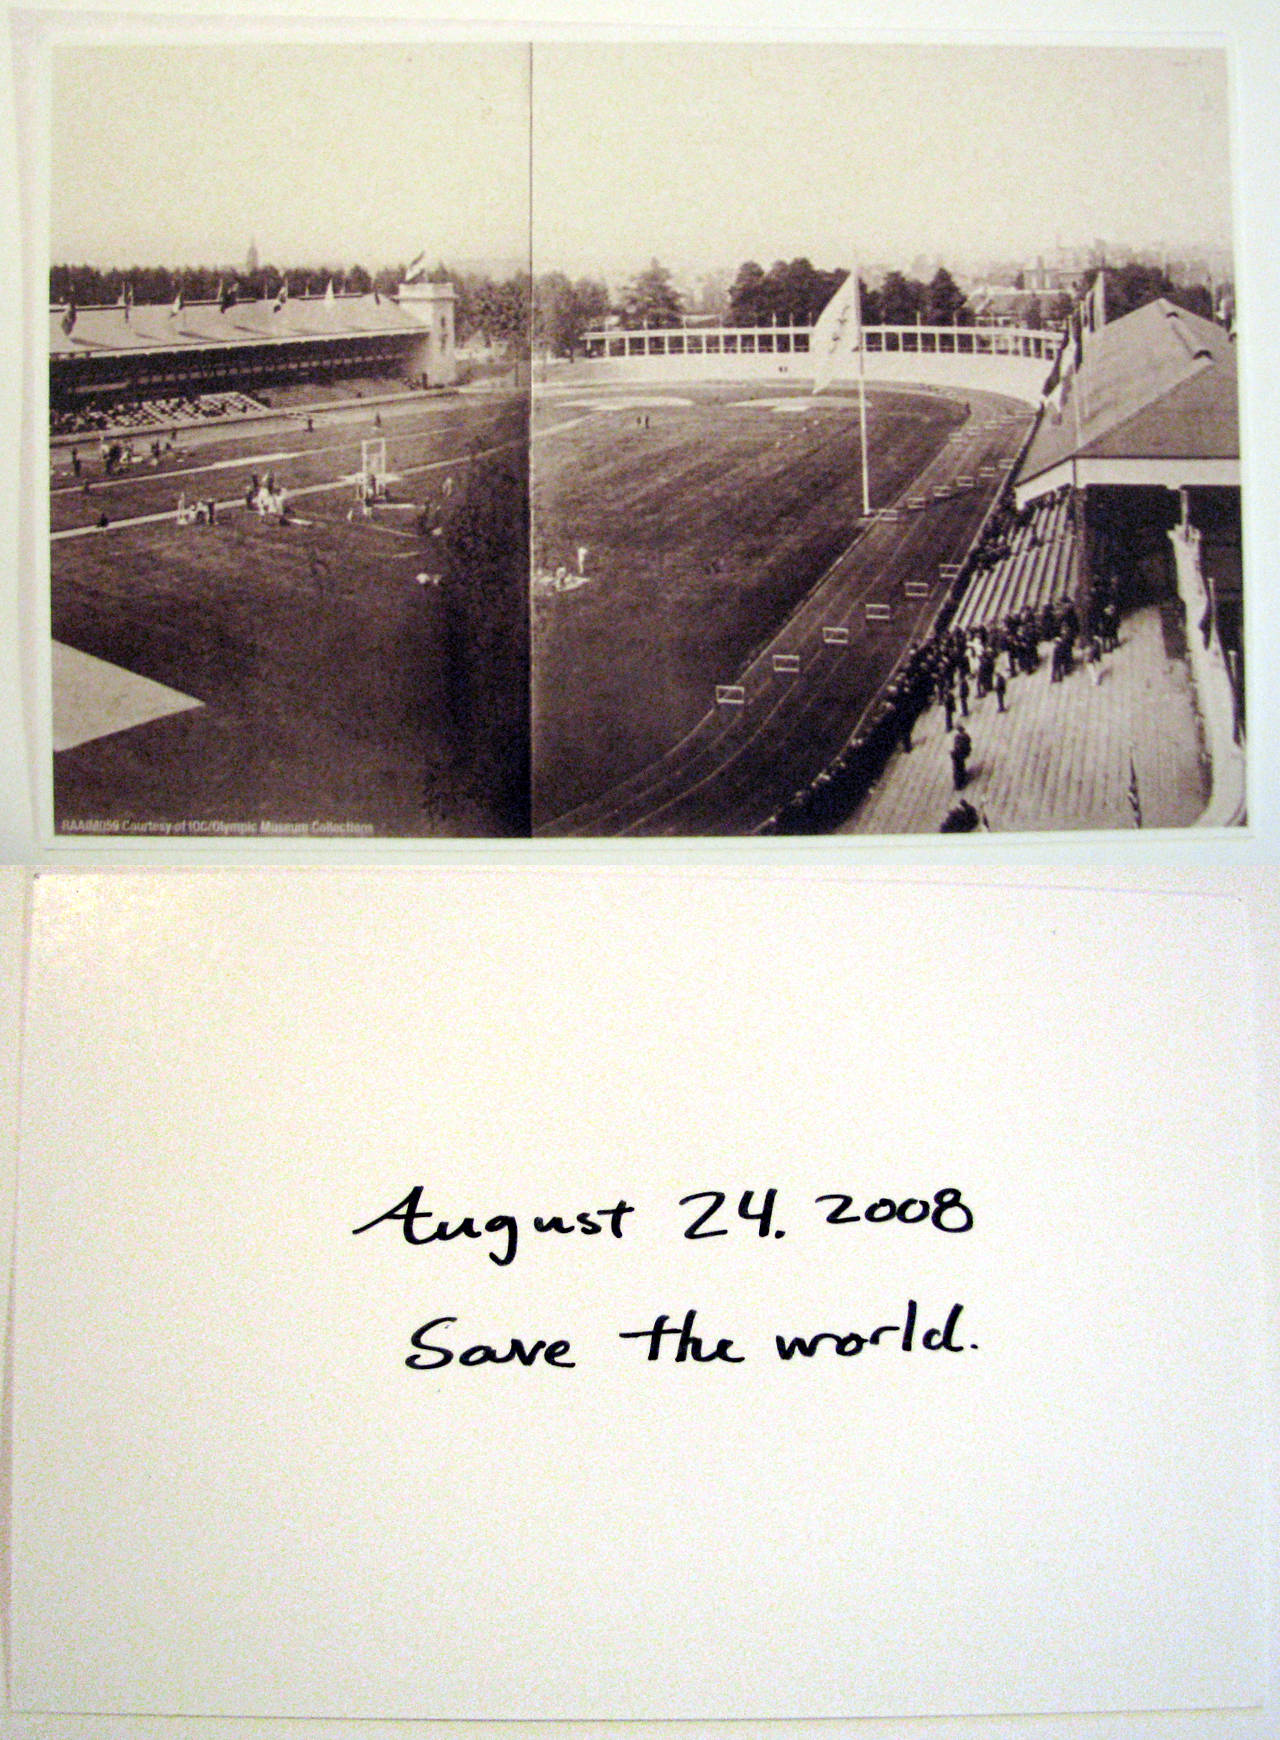 RAAIM059 Courtesy of IOC/Olympic Museum Collections
August 24. 2008
Save the world.